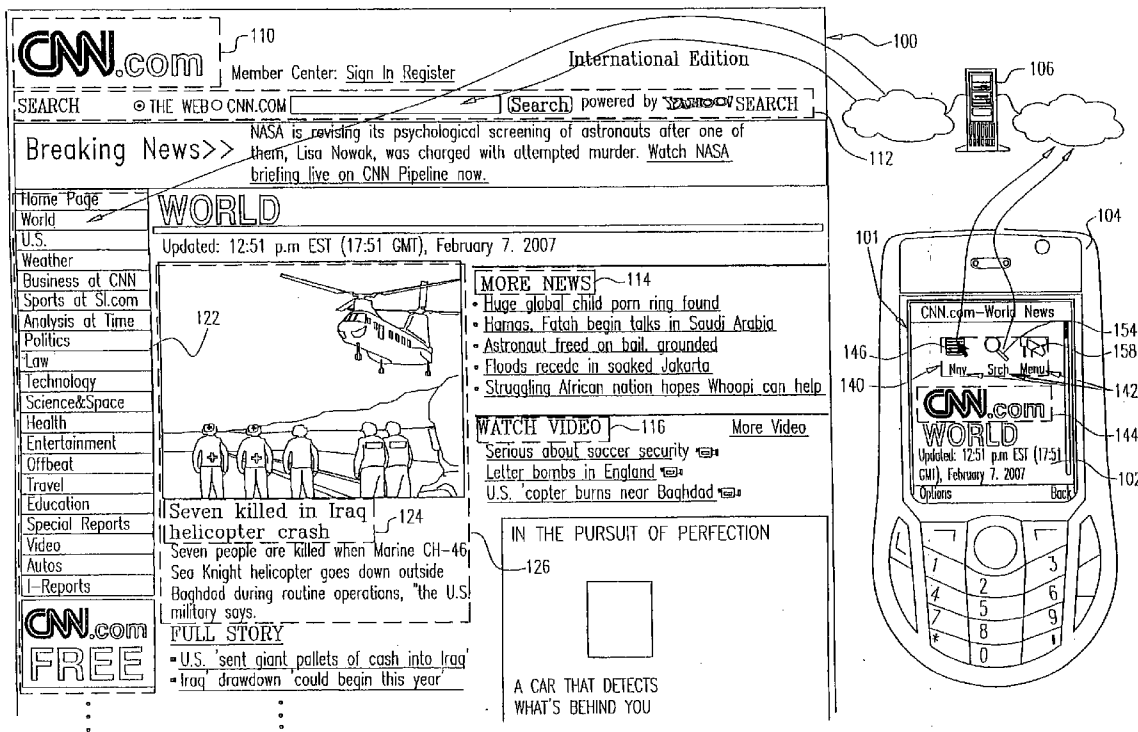 CNN.com
110
Member Center: Sign In Register
International Edition
100
SEARCH THE WEB CNN.COM Search powered by YAHOO! SEARCH
112
Breaking News>>
NASA is revising its psychological screening of astronauts after one of
them, Lisa Nowak, was charged with attempted murder. Watch NASA
briefing live on CNN Pipeline now.
Home Page
World
U.S.
Weather
Business at CNN
Sports at SI.com
Analysis at Time
Politics
Law
Technology
Science&Space
Health
Entertainment
Offbeat
Travel
Education
Special Reports
Video
Autos
I-Reports
CNN.com
FREE
WORLD
Updated: 12:51 p.m EST (17:51 GMT), February 7. 2007
122
Seven killed in Iraq
helicopter crash
124
Seven people are killed when Marine CH-46
Sea Knight helicopter goes down outside
Baghdad during routine operations, "the U.S
military says.
126
FULL STORY
U.S. 'sent giant pallets of cash into Iraq'
Iraq' drawdown 'could begin this year'
MORE NEWS
114
Huge global child porn ring found
Hamas, Fatah begin talks in Saudi Arabia
Astronaut freed on bail, grounded
Floods recede in soaked Jakarta
Struggling African nation hopes Whoopi can help
WATCH VIDEO
116
More Video
Serious about soccer security
Letter bombs in England
U.S. 'copter burns near Baghdad
IN THE PURSUIT OF PERFECTION
A CAR THAT DETECTS
WHAT'S BEHIND YOU
106
104
101
CNN.com-World News
154
146
158
140
Nav Srch Menu
142
CNN.com
WORLD
144
Updated: 12:51 p.m EST (17:51
GMT), February 7. 2007
102
Options Back
1 2 3
4 5 6
7 8 9
* 0